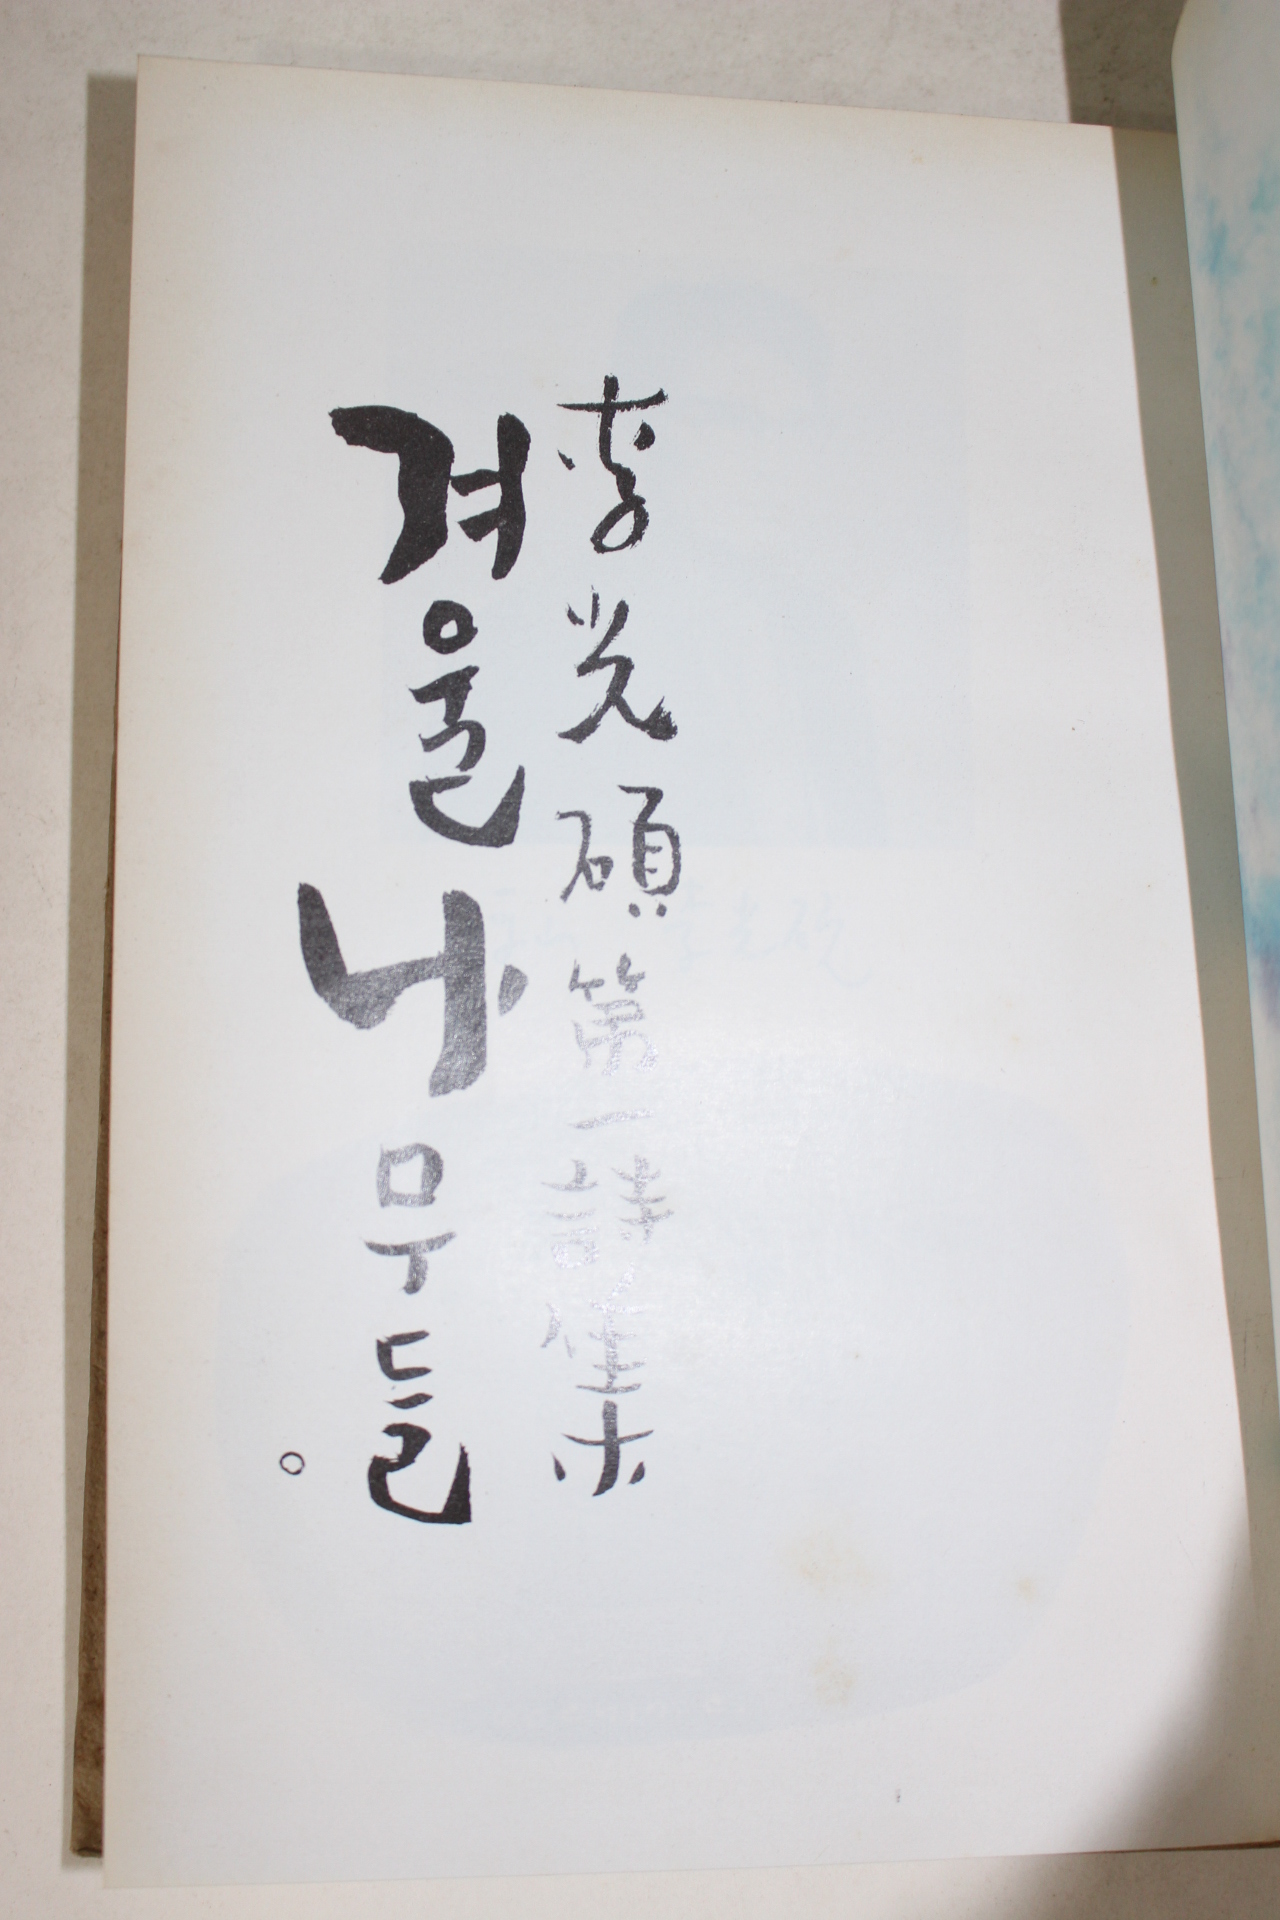 李光碩第一詩集
겨울나무들